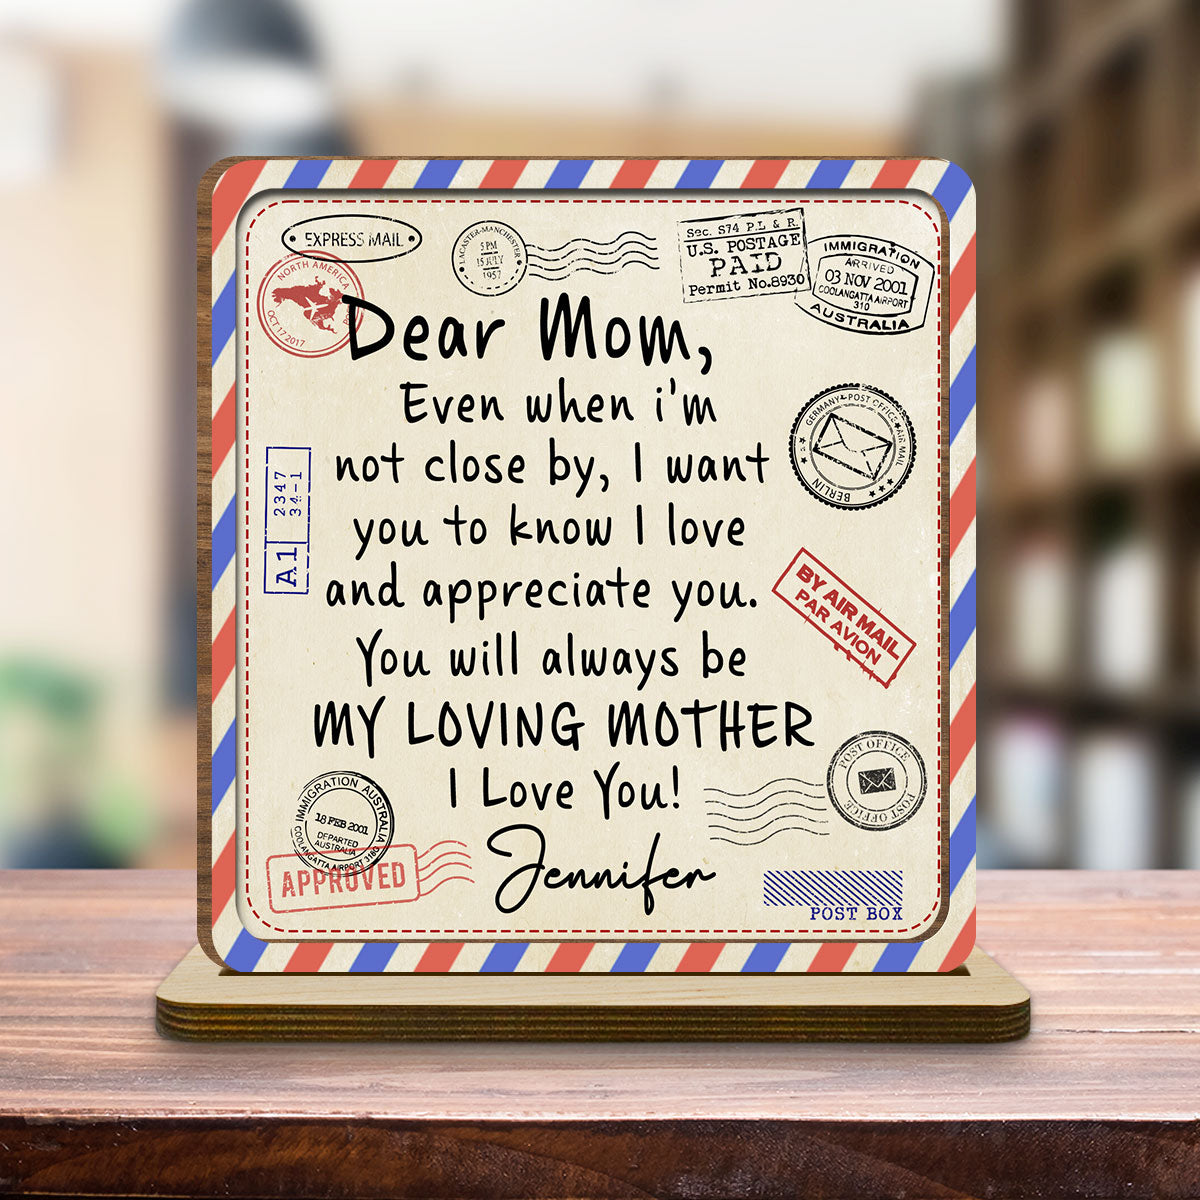 EXPRESS MAIL
LACASTER-MANCHESTER
5 PM
15 JULY
1957
Sec. S74 P.L & R.
U.S. POSTAGE
PAID
Permit No.8930
IMMIGRATION
ARRIVED
03 NOV 2001
COOLANGATTA AIRPORT
310
AUSTRALIA
NORTH AMERICA
OCT 17 2017
Dear Mom,
Even when i'm
not close by, I want
you to know I love
and appreciate you.
You will always be
MY LOVING MOTHER
I Love You!
Jennifer
GERMANY POST OFFICE AIR MAIL
BERLIN
A1
2347
34-1
BY AIR MAIL
PAR AVION
POST OFFICE
POST OFFICE
IMMIGRATION AUSTRALIA
18 FEB 2001
DEPARTED
AUSTRALIA
COOLANGATTA AIRPORT 3180
APPROVED
POST BOX